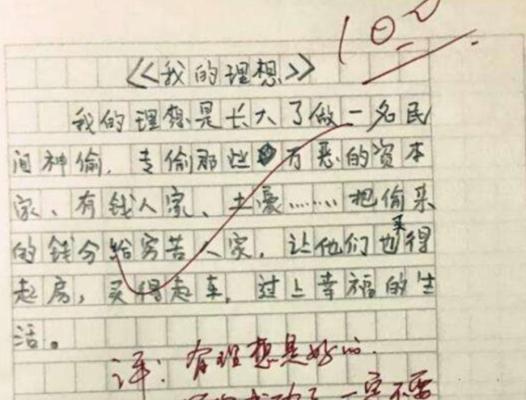 100
《我的理想》
我的理想是长大了做一名民
间神偷，专偷那些万恶的资本
家、有钱人家、土豪……把偷来
的钱分给穷苦人家，让他们也买得
起房，买得起车，过上幸福的生
活。
评：有理想是好的。
一定不要